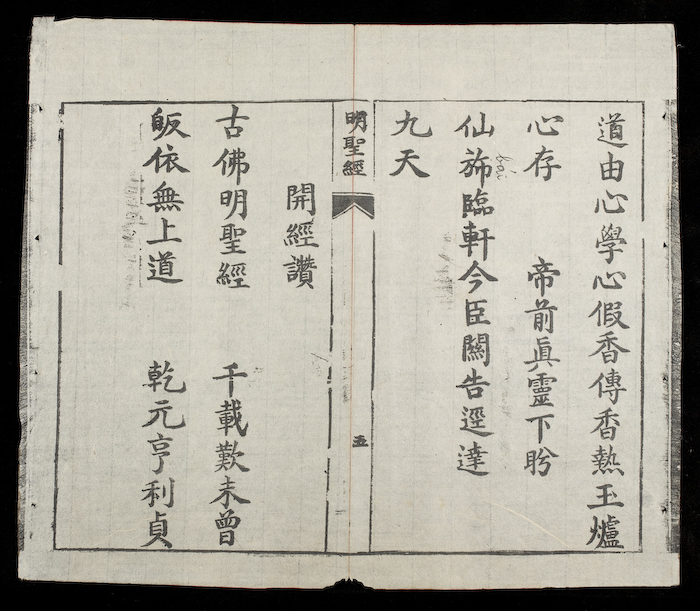 道由心學心假香傳香熱玉爐
心存　帝前眞靈下盻
仙斾臨軒今臣關告逕達
九天
明聖經
五
開經讚
古佛明聖經　千載歎未曾
皈依無上道　乾元亨利貞